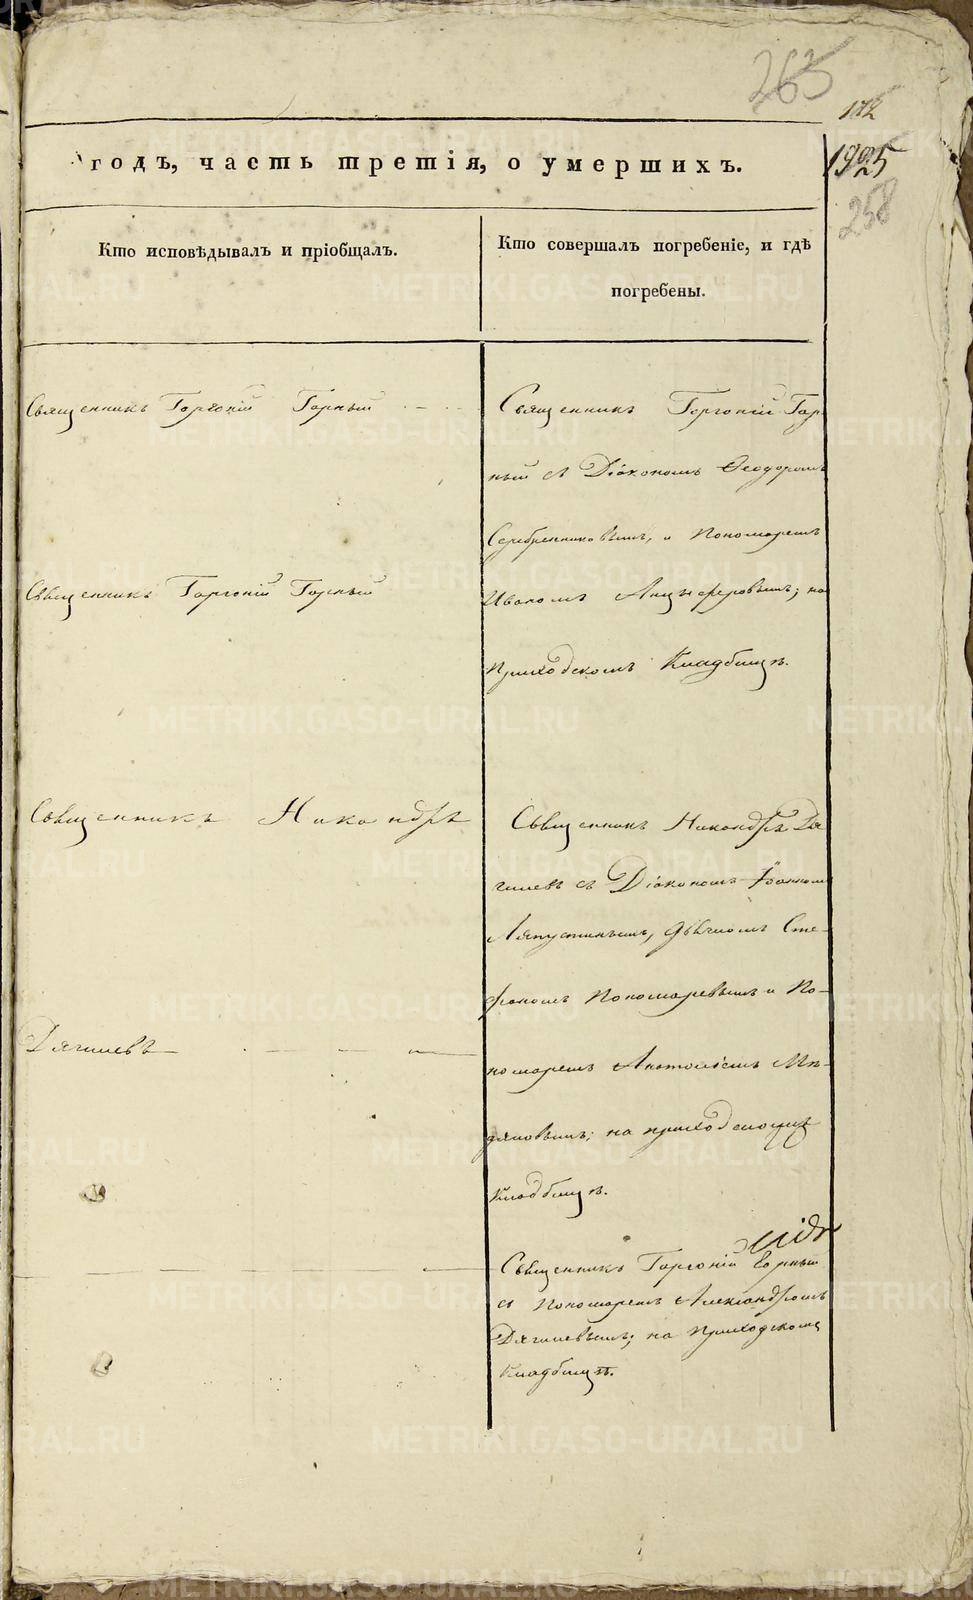 263
172
годъ, часть третія, о умершихъ.
1925
258
Кто исповѣдывалъ и пріобщалъ.
Кто совершалъ погребеніе, и гдѣ
погребены.
Священникъ Горгоній Горный
Священникъ Горгоній Гор
ный съ Діакономъ Ѳеодоромъ
Серебренниковымъ, и Пономаремъ
Иваномъ Анцыферовымъ; на
Приходскомъ Кладбищѣ.
Священникъ Горгоній Горный
Священникъ Никандръ
Дягилевъ
Священникъ Никандръ Дя
гилевъ съ Діакономъ Іоанномъ
Ляпустинымъ, дьячкомъ Сте-
фаномъ Пономаревымъ и По-
номаремъ Анатоліемъ
на приходскомъ
Кладбищѣ.
Священникъ Горгоній Горный
съ Пономаремъ Александромъ
Дягилевымъ; на Приходскомъ
Кладбищѣ.
METRIKI.GASO-URAL.RU